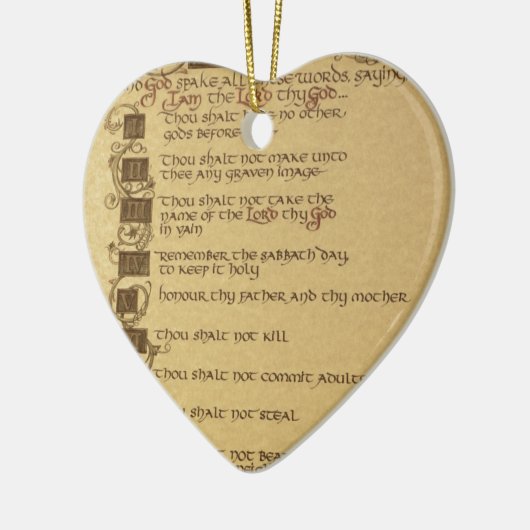 God spake all words, saying,
I am the Lord thy God...
I
Thou shalt no other
gods before
II
Thou shalt not make unto
thee any graven image
III
Thou shalt not take the
name of the Lord thy God
in vain
IV
Remember the Sabbath day,
to keep it holy
V
honour thy father and thy mother
Thou shalt not kill
thou shalt not commit
shalt not steal
not